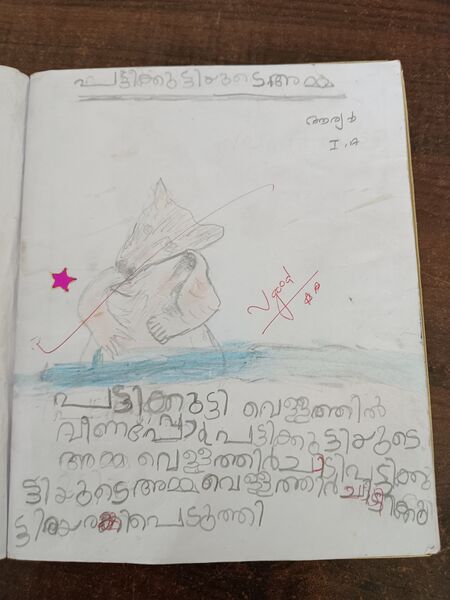 പട്ടിക്കുട്ടിയുടെ അമ്മ
ആര്യൻ
I, A
V good
പട്ടിക്കുട്ടി വെള്ളത്തിൽ
വീണപ്പോൾ പട്ടിക്കുട്ടിയുടെ
അമ്മ വെള്ളത്തിൽ ചാടി പട്ടിക്കു
ട്ടിയുടെ അമ്മ വെള്ളത്തിൽ ചാടി
ട്ടിയെ രക്ഷപെടുത്തി